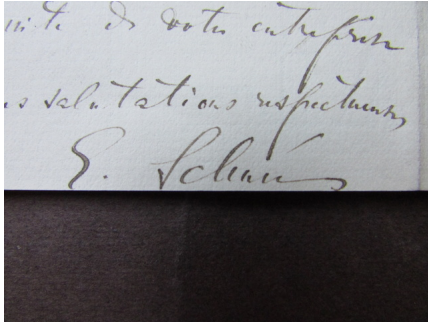 de votre entreprise
salutations respectueuses
E.